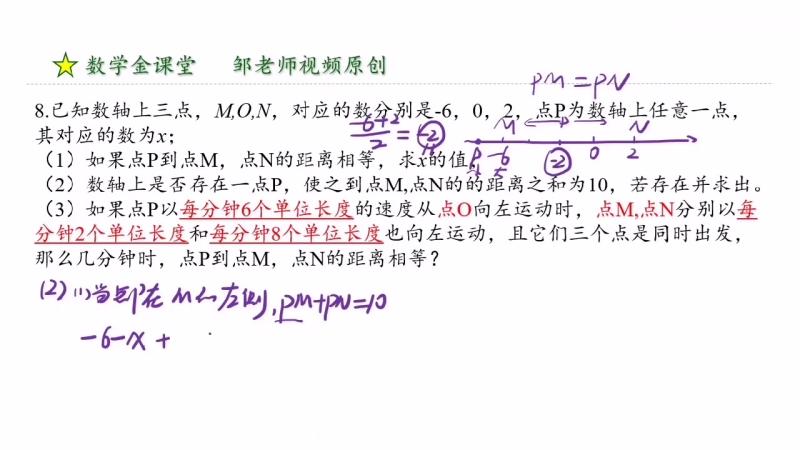 数学金课堂 邹老师视频原创
PM=PN
8.已知数轴上三点，M,O,N，对应的数分别是-6，0，2，点P为数轴上任意一点，
其对应的数为x；
-6+2/2=-2
M P N
（1）如果点P到点M，点N的距离相等，求x的值。
P -6 -2 0 2
（2）数轴上是否存在一点P，使之到点M,点N的的距离之和为10，若存在并求出。
（3）如果点P以每分钟6个单位长度的速度从点O向左运动时，点M,点N分别以每
分钟2个单位长度和每分钟8个单位长度也向左运动，且它们三个点是同时出发，
那么几分钟时，点P到点M，点N的距离相等？
(2) (1)当点P在M的左侧,PM+PN=10
-6-x+